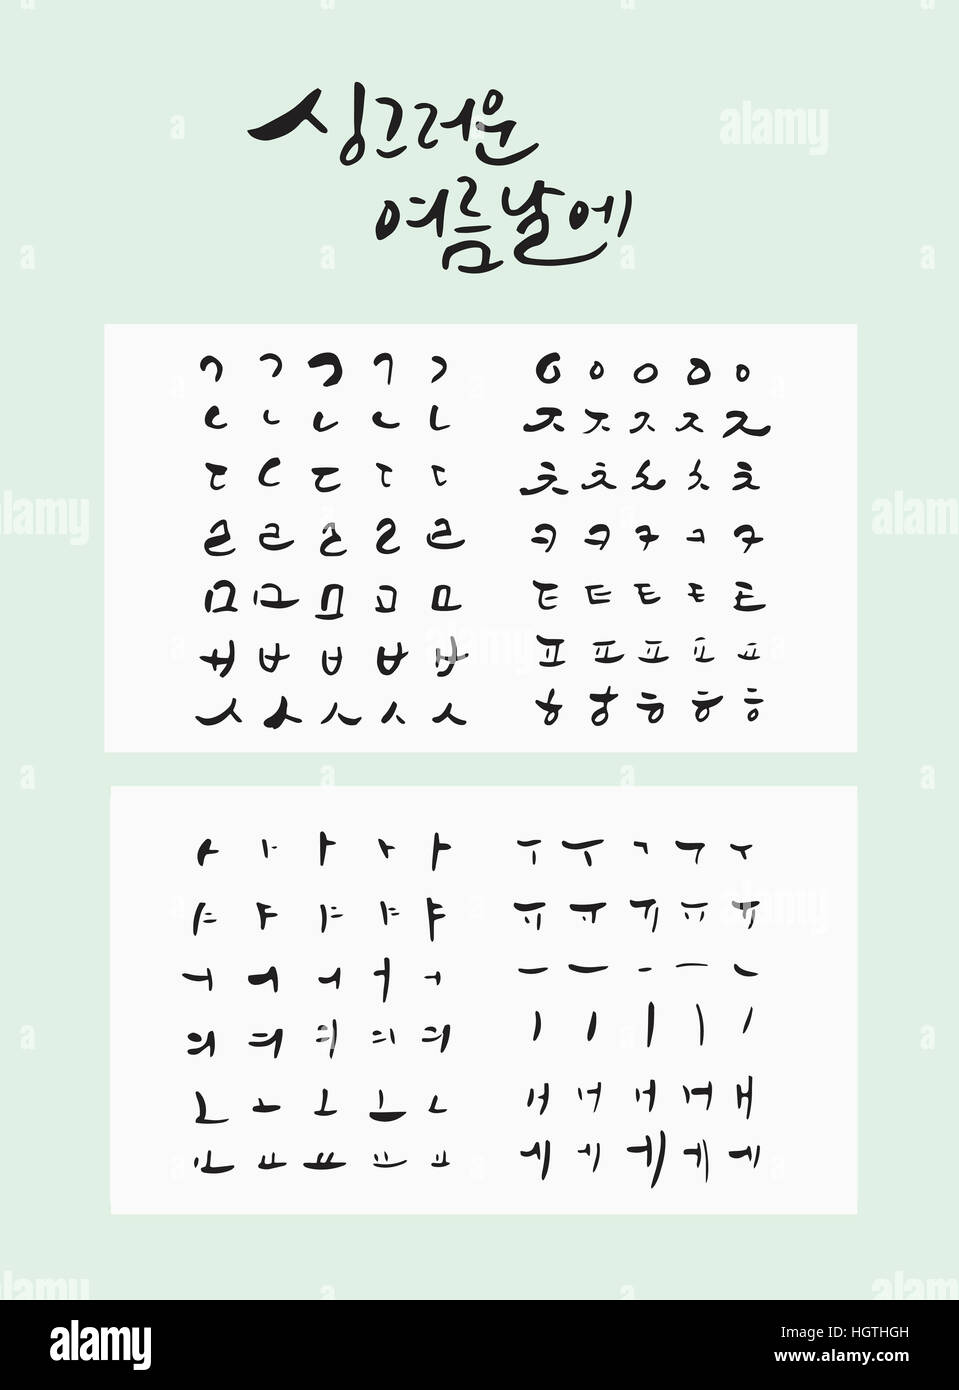 싱그러운
여름날에
ㄱ ㄱ ㄱ ㄱ ㄱ ㅇ ㅇ ㅇ ㅇ ㅇ
ㄴ ㄴ ㄴ ㄴ ㄴ ㅈ ㅈ ㅈ ㅈ ㅈ
ㄷ ㄷ ㄷ ㄷ ㄷ ㅊ ㅊ ㅊ ㅊ ㅊ
ㄹ ㄹ ㄹ ㄹ ㄹ ㅋ ㅋ ㅋ ㅋ ㅋ
ㅁ ㅁ ㅁ ㅁ ㅁ ㅌ ㅌ ㅌ ㅌ ㅌ
ㅂ ㅂ ㅂ ㅂ ㅂ ㅍ ㅍ ㅍ ㅍ ㅍ
ㅅ ㅅ ㅅ ㅅ ㅅ ㅎ ㅎ ㅎ ㅎ ㅎ
ㅏ ㅏ ㅏ ㅏ ㅏ ㅜ ㅜ ㅜ ㅜ ㅜ
ㅑ ㅑ ㅑ ㅑ ㅑ ㅠ ㅠ ㅠ ㅠ ㅠ
ㅓ ㅓ ㅓ ㅓ ㅓ ㅡ ㅡ ㅡ ㅡ ㅡ
ㅕ ㅕ ㅕ ㅕ ㅕ ㅣ ㅣ ㅣ ㅣ ㅣ
ㅗ ㅗ ㅗ ㅗ ㅗ ㅐ ㅐ ㅐ ㅐ ㅐ
ㅛ ㅛ ㅛ ㅛ ㅛ ㅔ ㅔ ㅔ ㅔ ㅔ
alamy
Image ID: HGTHGH
www.alamy.com